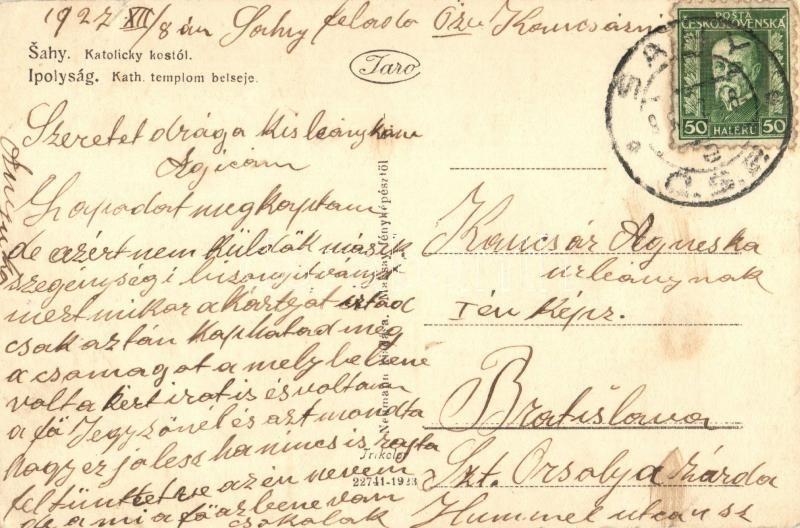 1927 XII/8 án Sahy felado Özv Koncsárn
Šahy. Katolicky kostól.
Ipolyság. Kath. templom belseje.
Taro
POSTA
ČESKOSLOVENSKÁ
50 HALÉŘŮ 50
Szeretet drága kis leánykám
Ágicám
Lapodat megkaptam
de azért nem küldök másik
szegénységi bizonyitványt
mert mikor a kártyát irtad
csak aztán kaphatad meg
a csomagot a mely be lene
volt a kért irat is és voltam
a fő Jegyzőnél és azt mondta
hogy ez jó less ha nincs is rajta
feltüntetve az én nevem
de a mi a fő az bene van
csokolak
Anyuka
Neumann kiadása. Mazsay fényképésztől
Trikolor
22741-1923
Koncsár Ágneska
urleánynak
I én Képz.
Bratislava
Szt. Orsolya zárda
Hummel utca